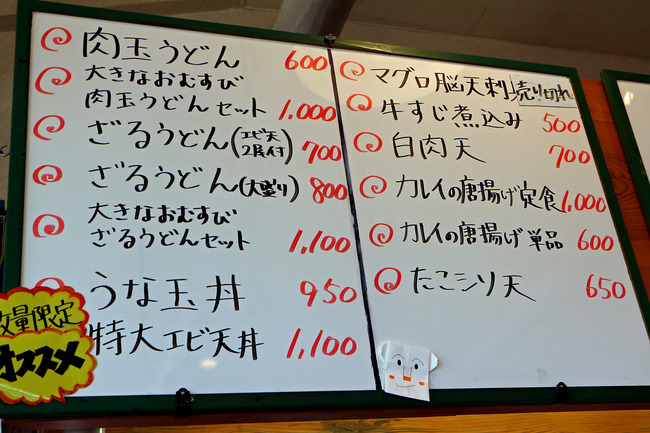 肉玉うどん 600
大きなおむすび
肉玉うどんセット 1,000
ざるうどん(エビ天2尾付) 700
ざるうどん(大盛り) 800
大きなおむすび
ざるうどんセット 1,100
うな玉丼 950
特大エビ天丼 1,100
数量限定
オススメ
マグロ脳天刺 売り切れ
牛すじ煮込み 500
白肉天 700
カレイの唐揚げ定食 1,000
カレイの唐揚げ単品 600
たこシソ天 650